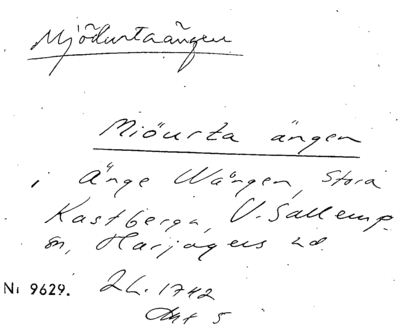 Mjödurtaängen
Miöurta ängen
i Änge Wången, Stora
Kastberga, V. Sallerup
sn, Harjagers hd.
Nr 9629. LL. 1742
Akt 5